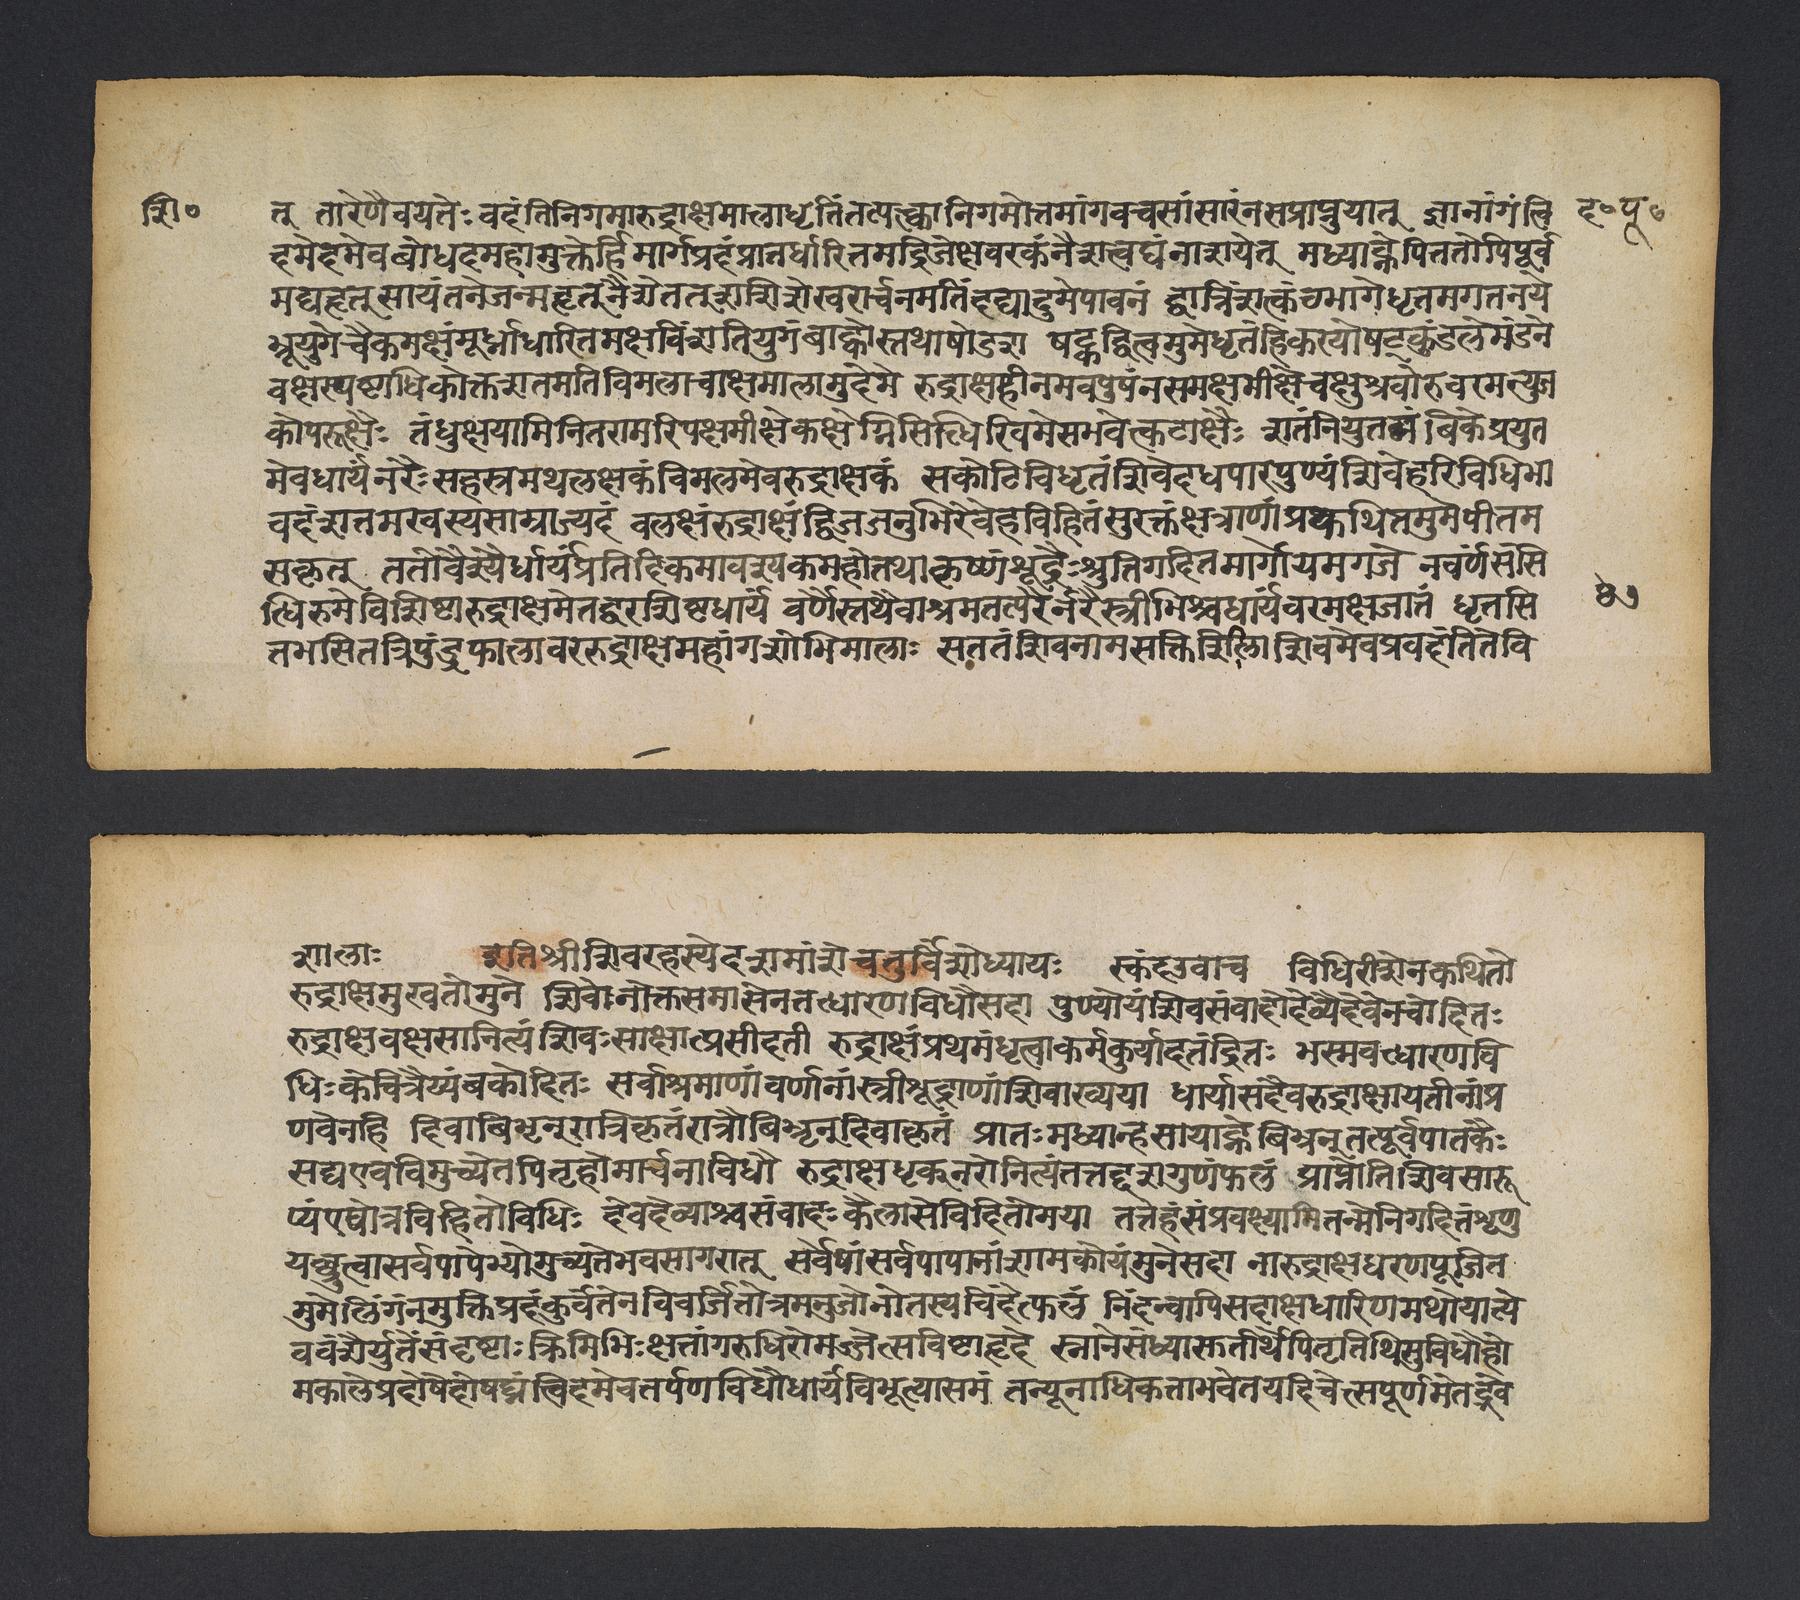 शि०
त् तारेणैवयतेः वदंतिनिगमारुद्राक्षमालाधृतिंतत्पत्कानिगमोत्तमांगवचसांसारंनसप्राप्नुयात् ज्ञानांगंलि
द०पू०
दमेहमेवबोधदमहामुक्तेर्हिमार्गप्रदंप्रातर्धारितमद्रिजेक्षवरकंनैशत्वघंनाशयेत् मध्याह्नेपिततोपिपूर्व
मद्यहृत्सायंतनेजन्महृत्नैशेतत्शशिशेखरार्चनमतिंदद्यादुमेपावनं द्वात्रिंशत्कंठभागेधृतमगतनये
भ्रूयुगेचैकमक्षंमूर्ध्नाधारितमक्षविंशतियुगंबाह्वोस्तथाषोडश षट्कद्वित्वमुमेधृतंहिकरयोषट्कुंडलेमंडने
वक्षस्यष्टाधिकोक्तशतमतिविमलाचाक्षमालामुदेमे रुद्राक्षहीनमवपुषंनसमक्षमीक्षेचक्षुश्रवोरुवरमत्युग्र
कोपरूक्षैः तंधुक्षयामिनितरामरिपक्षमीक्षेकक्षेग्निसित्धिरिवमेसमवेत्कटाक्षैः शतंनियुतमंबिकेप्रयुत
मेवधार्यंनरैःसहस्त्रमथलक्षकंविमलमेवरुद्राक्षकं सकोटिविधृतंशिवेदधपारपुण्यंशिवेहरिविधिभा
वदंशतमखस्यसाम्राज्यदं वलक्षंरुद्राक्षंद्विजजनुभिरेवेहविहितंसुरक्तंक्षत्राणांप्रकथितमुमेपीतम
सकृत् ततोवैश्यैर्धार्यंप्रतिहिकमावश्यकमहोतथाकृष्णंश्रूद्रैःश्रुतिगदितमार्गोयमगजे नवर्णसंसि
त्धिरुमेविशिष्टारुद्राक्षमेतद्वरशिष्टधार्यं वर्णैस्तथैवाश्रमतत्परैर्नरैस्त्रीभिश्चधार्यंवरमक्षजातं धृतसि
४७
तभसितत्रिपुंड्रफालावररुद्राक्षमहांगशोभिमालाः सततंशिवनामसक्तिशिलाशिवमेवप्रवदंतितेवि
शालाः इतिश्रीशिवरहस्येदशमांशेचतुर्विंशोध्यायः स्कंदउवाच विधिरीशेनकथितो
रुद्राक्षमुखतोमुने शिवेनोक्तसमासेनतत्धारणविधौसदा पुण्योयंशिवसंवादोदेव्यैदेवेनचोदितः
रुद्राक्षवक्षसानित्यंशिवःसाक्षात्प्रसीदती रुद्राक्षंप्रथमंधृत्वाकर्मकुर्यादतंद्रितः भस्मवत्धारणवि
धिःकेवित्रैय्यंबकोदितः सर्वाश्रमाणांवर्णानांस्त्रीश्रूद्राणांशिवाख्यया धार्यासदैवरुद्राक्षायतीनांप्र
णवेनहि दिवाबिभृन्रात्रिकृतंरात्रौबिभृन्दिवाकृतं प्रातःमध्यान्हसायाह्नेबिभ्रन्तत्पूर्वपातकैः
सद्यएवविमुच्येतपितृहोमार्चनाविधौ रुद्राक्षधृक्नरोनित्यंतत्तद्दशगुणंफलं प्राप्नोतिशिवसारू
प्यंएषोत्रविहितोविधिः देवदेव्याश्चसंवादःकैलासेविहितोमया तत्तेहंसंप्रवक्ष्यामितन्मेनिगदितंशृणु
यच्छ्रुत्वासर्वपापेभ्योमुच्यतेभवसागरात् सर्वेषांसर्वपापानांशामकोयंमुनेसदा नारुद्राक्षधरणपूजित
मुमेलिंगंनमुक्तिप्रदंकुर्वतेनविवर्जितोत्रमनुजोनोतस्यविंदेत्फलं निंदन्वापिसदाक्षधारिणमथोयात्ये
ववंशैर्युतैंसंदृष्टाःक्रिमिभिःक्षतांगरुधिरोमज्जेत्सविष्टाहृदे स्नानेसंध्यासुतीर्थेपितृतिथिसुविधौहो
मकालेप्रदोषेदोषघ्नंत्विदमेवतर्पणविधौधार्यंविभूत्यासमं तन्यूनाधिकताभवेतयदिचेत्सपूर्णमेतद्भवे